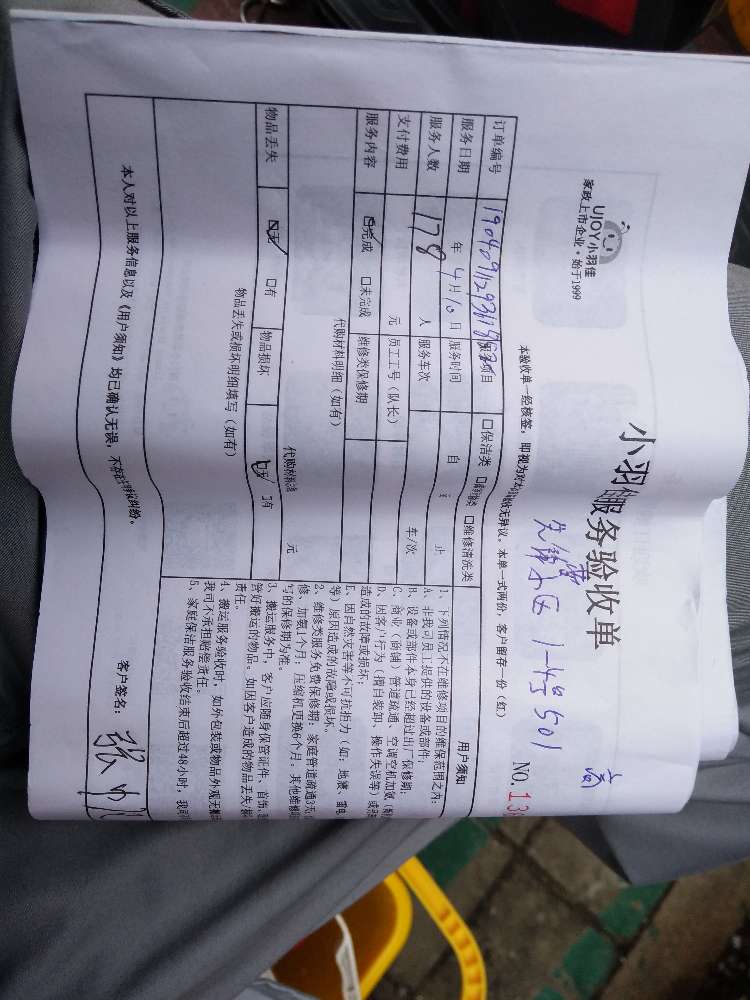 小羽佳服务验收单
UJOY小羽佳
家政上市企业·始于1999
501
NO.13
本验收单一经核签，即视为对验收无异议，本单一式两份，客户留存一份（红）
订单编号
服务项目 □保洁类 □维修清洗类
服务日期 年 4月10日 服务时间 自 止
服务人数 178 人 服务车次 车/次
支付费用 元 员工工号（队长）
服务内容 ☑完成 □未完成 维修类保修期
代购材料明细（如有）
代购材料 元
物品丢失 ☑无 □有 物品损坏 ☑无 □有
物品丢失或损坏明细填写（如有）
用户须知
1、下列情况不在维修项目的维保范围之内：
A、非我司员工提供的设备或部件；
B、设备或部件本身已经超过出厂保修期；
C、商业（商铺）管道疏通、空调空机加氟
D、因客户行为（擅自装卸、操作失误等）或
造成的故障或损坏；
E、因自然灾害等不可抗拒力（如：地震、雷电
等）原因造成的故障或损坏。
2、维修类服务免费保修期：家庭管道疏通3天
修，加氟1个月；压缩机更换6个月；其他维修
写的保修期为准。
3、搬运服务中，客户应随身保管证件、首饰、
管好搬运的物品。如因客户造成的物品丢失
责任。
4、搬运服务验收时，如外包装或物品外观无
我司不承担赔偿责任。
5、家庭保洁服务验收结束后超过48小时，我司
本人对以上服务信息以及《用户须知》均已确认无误，不存在纠纷。
客户签名：张